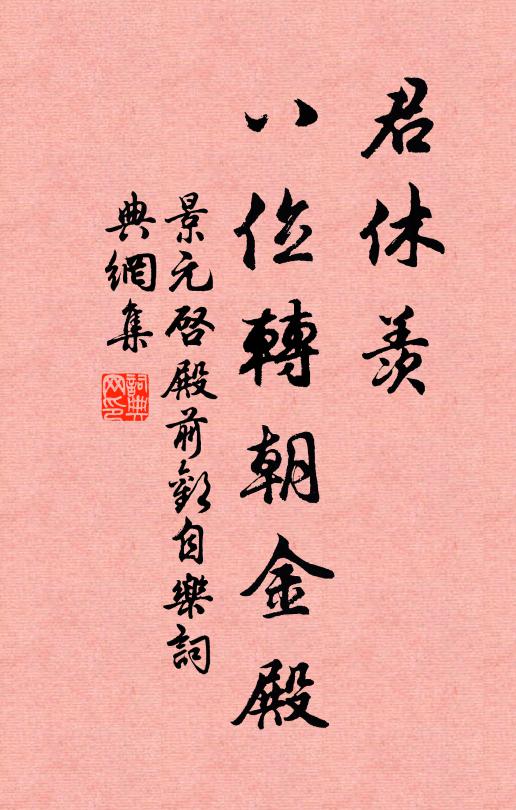 君休羨
八位轉朝金殿
景元啓殿前歡自樂詞
典網集
詞典網印